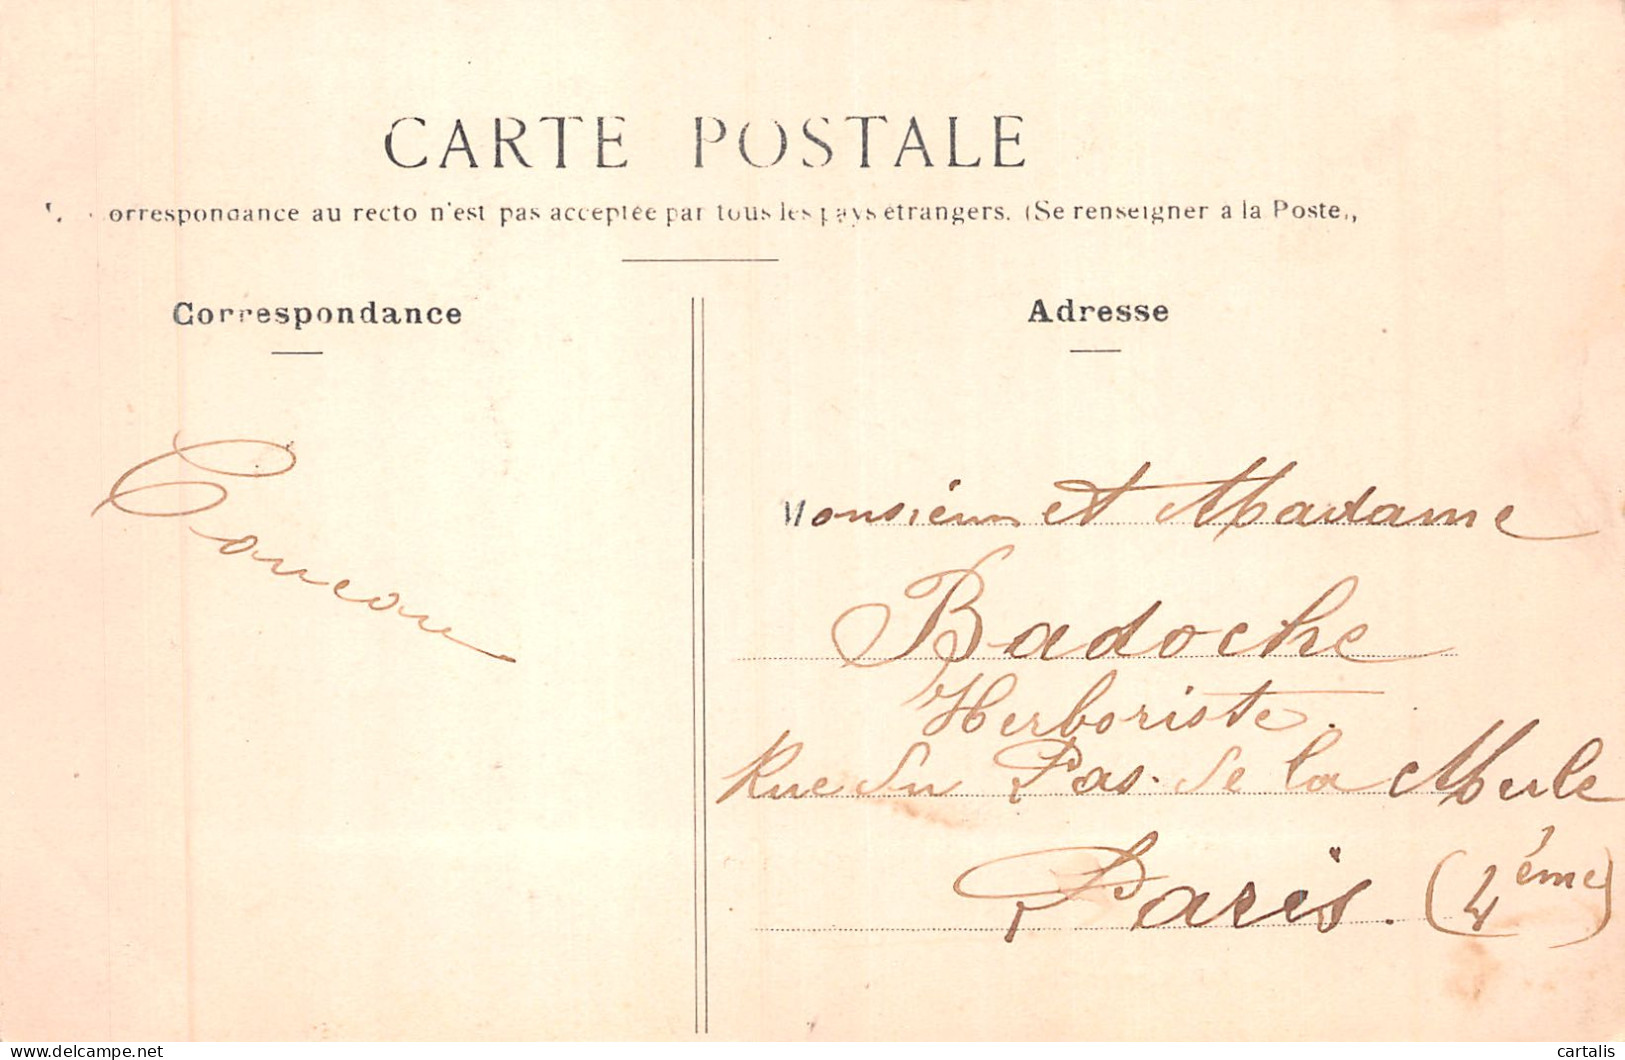 CARTE POSTALE
orrespondance au recto n'est pas acceptée par tous les pays étrangers. (Se renseigner à la Poste.)
Correspondance
Adresse
Monsieur et Madame
Badoche
Herboriste.
Rue du Pas de la Mule
Paris. (4ème)
delcampe.net
cartalis